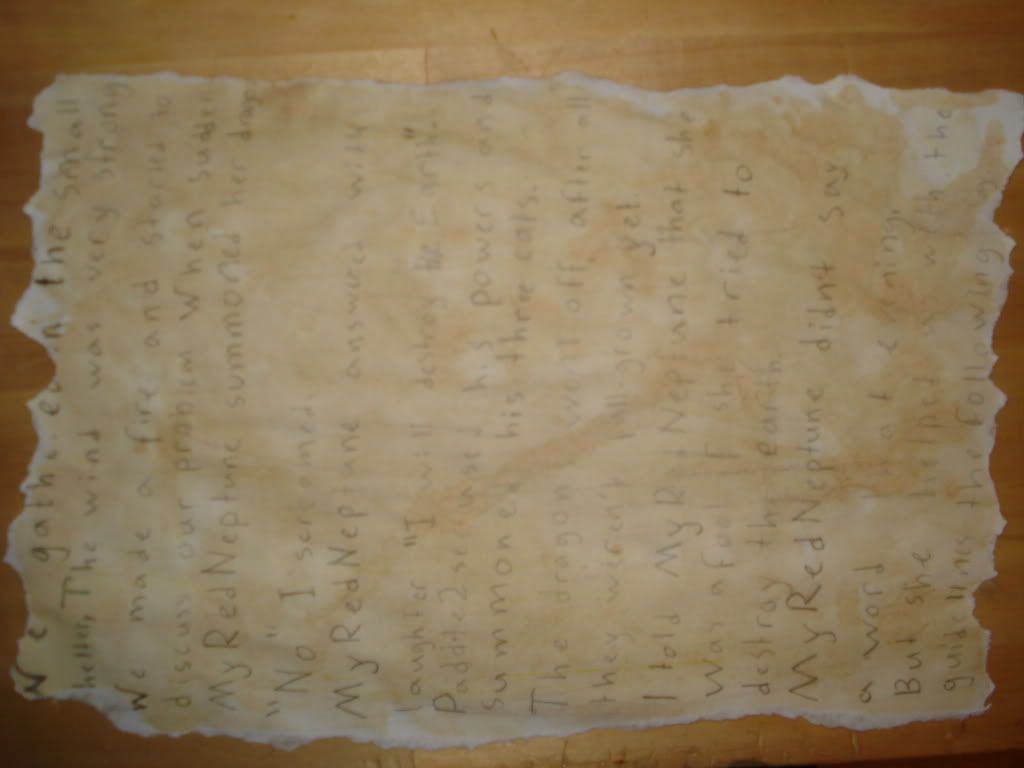 We gathered in the small
The wind was very strong
We made a fire and started to
discuss our problem when sudden
MyRedNeptune summoned her drag
"No" I screamed.
MyRedNeptane answered with
laughter "I will destroy the Earth".
Paddle2 used his powers and
summoned his three eals.
The dragon went off, after all
they weren't full-grown yet.
I told MyRedNeptune that she
was a fool if she tried to
destroy the earth
MyRedNeptune didnt say
a word that evening,
But she helped us with the
guidelines the following